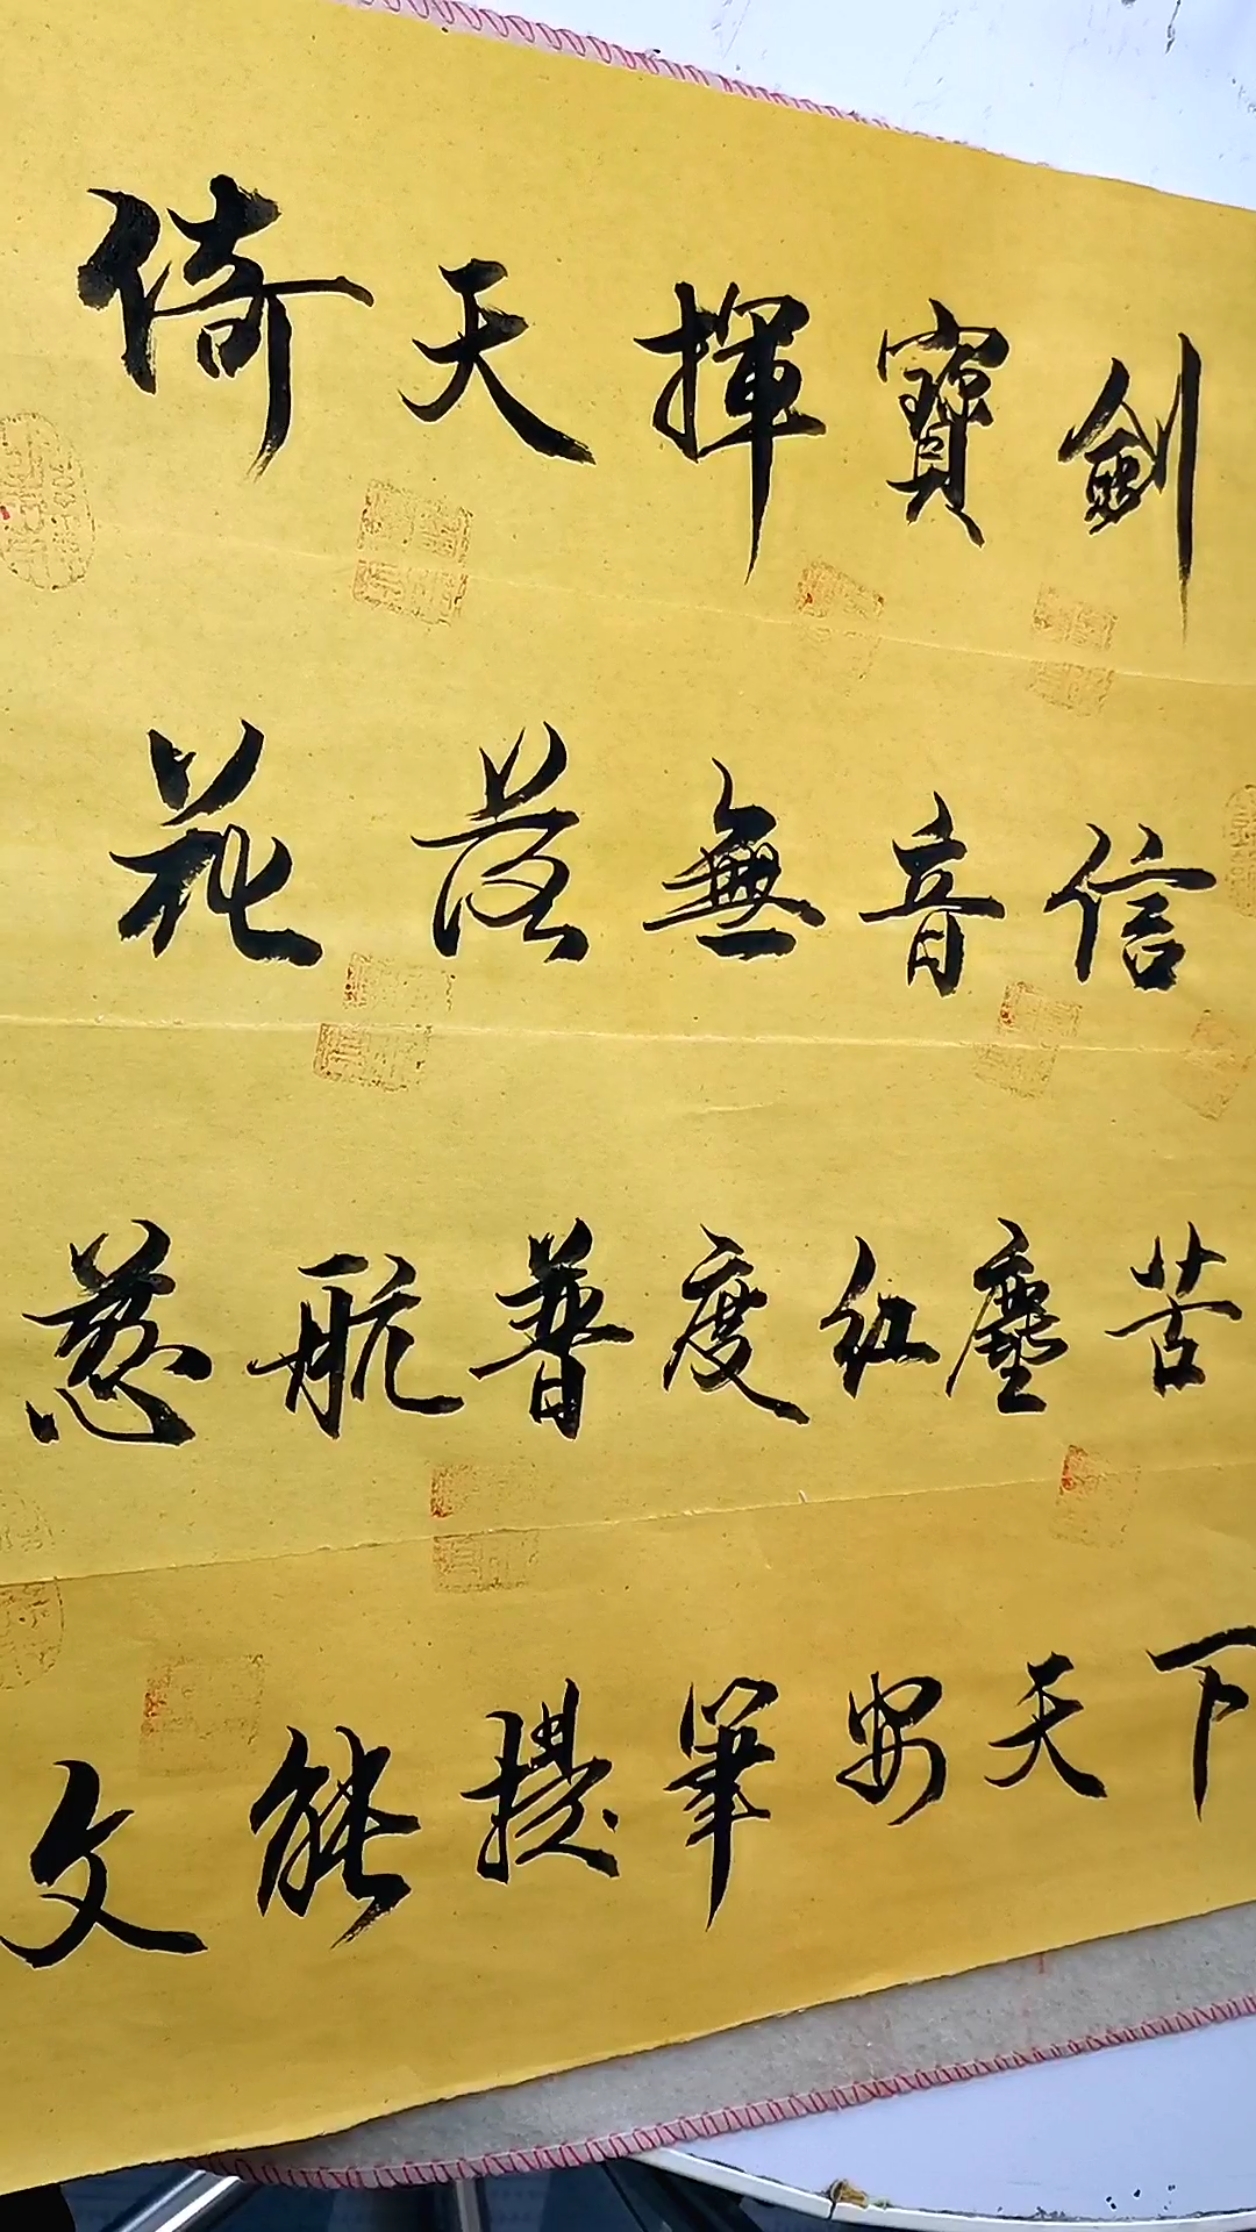 倚天揮寶劍
花落無音信
慈航普度紅塵苦
文能提筆安天下